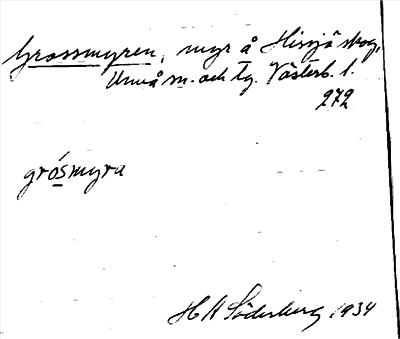 Grossmyren, myr å Hissjö skog,
Umeå sn. och tg. Västerb. l.
272
grósmyra
H A Söderberg 1934